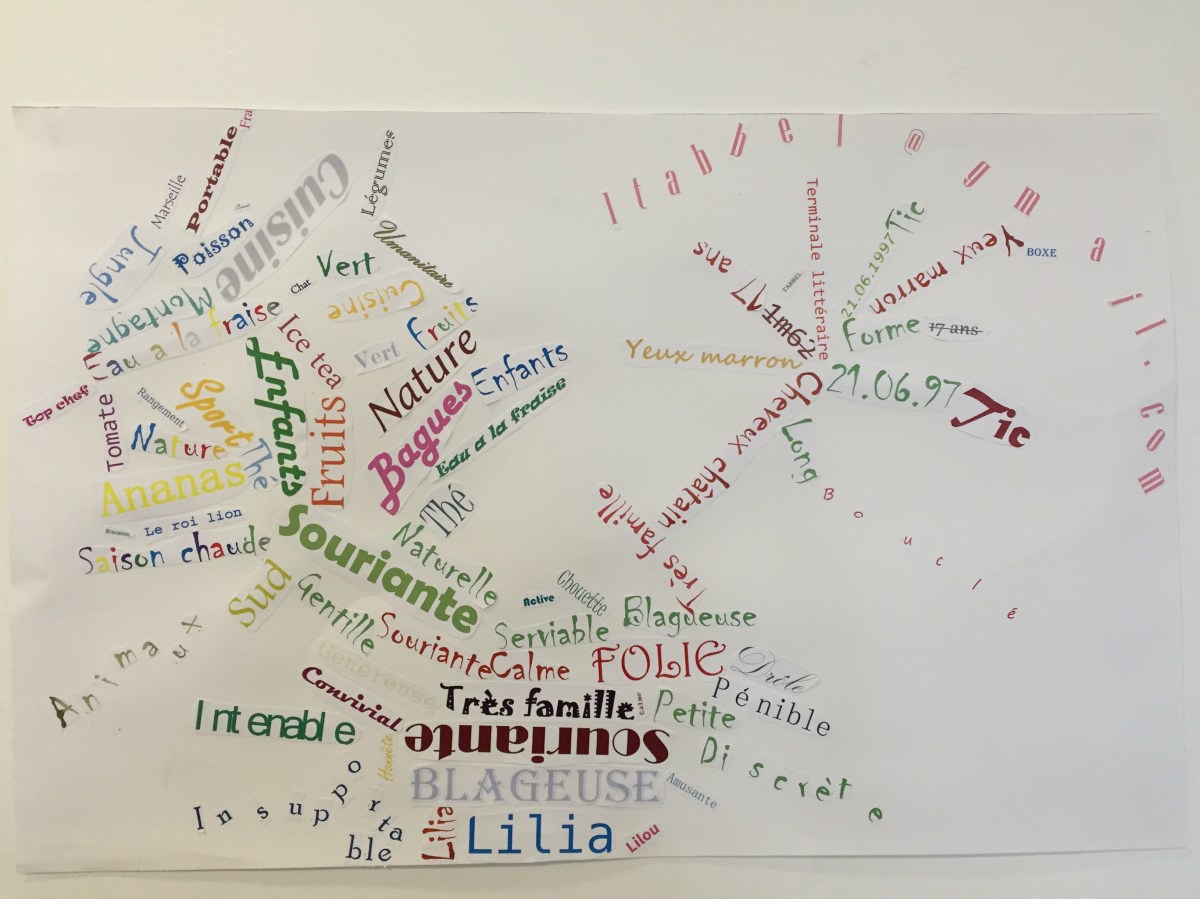 Portable
Fra
Marseille
Légumes
Cuisine
Poisson
Jungle
Umanitaire
Vert
Chat
Montagne
Cuisine
Fruits
eau a la fraise
Ice tea
Vert
Nature
Enfants
Top chef
Tomate
Rangement
Sport
Enfants
Fruits
Bagues
Eau a la fraise
Nature
Thé
Ananas
Thé
Le roi lion
Saison chaude
Souriante
Naturelle
Sud
Gentille
Active
Chouette
Serviable
Blagueuse
Animaux
Souriante
Calme
FOLIE
Drôle
Généreuse
Convivial
Très famille
Calme
Petite
Pénible
Intenable
Honnête
Souriante
Discrète
BLAGEUSE
Amusante
Insupportable
Lilia
Lilia
Lilou
ltabbel@gmail.com
Terminale littéraire
21.06.1997
Tic
Yeux marron
BOXE
17 ans
TABBEL
Forme
17 ans
Yeux marron
21.06.97
Tic
Cheveux châtain
Long
Bouclé
Très famille